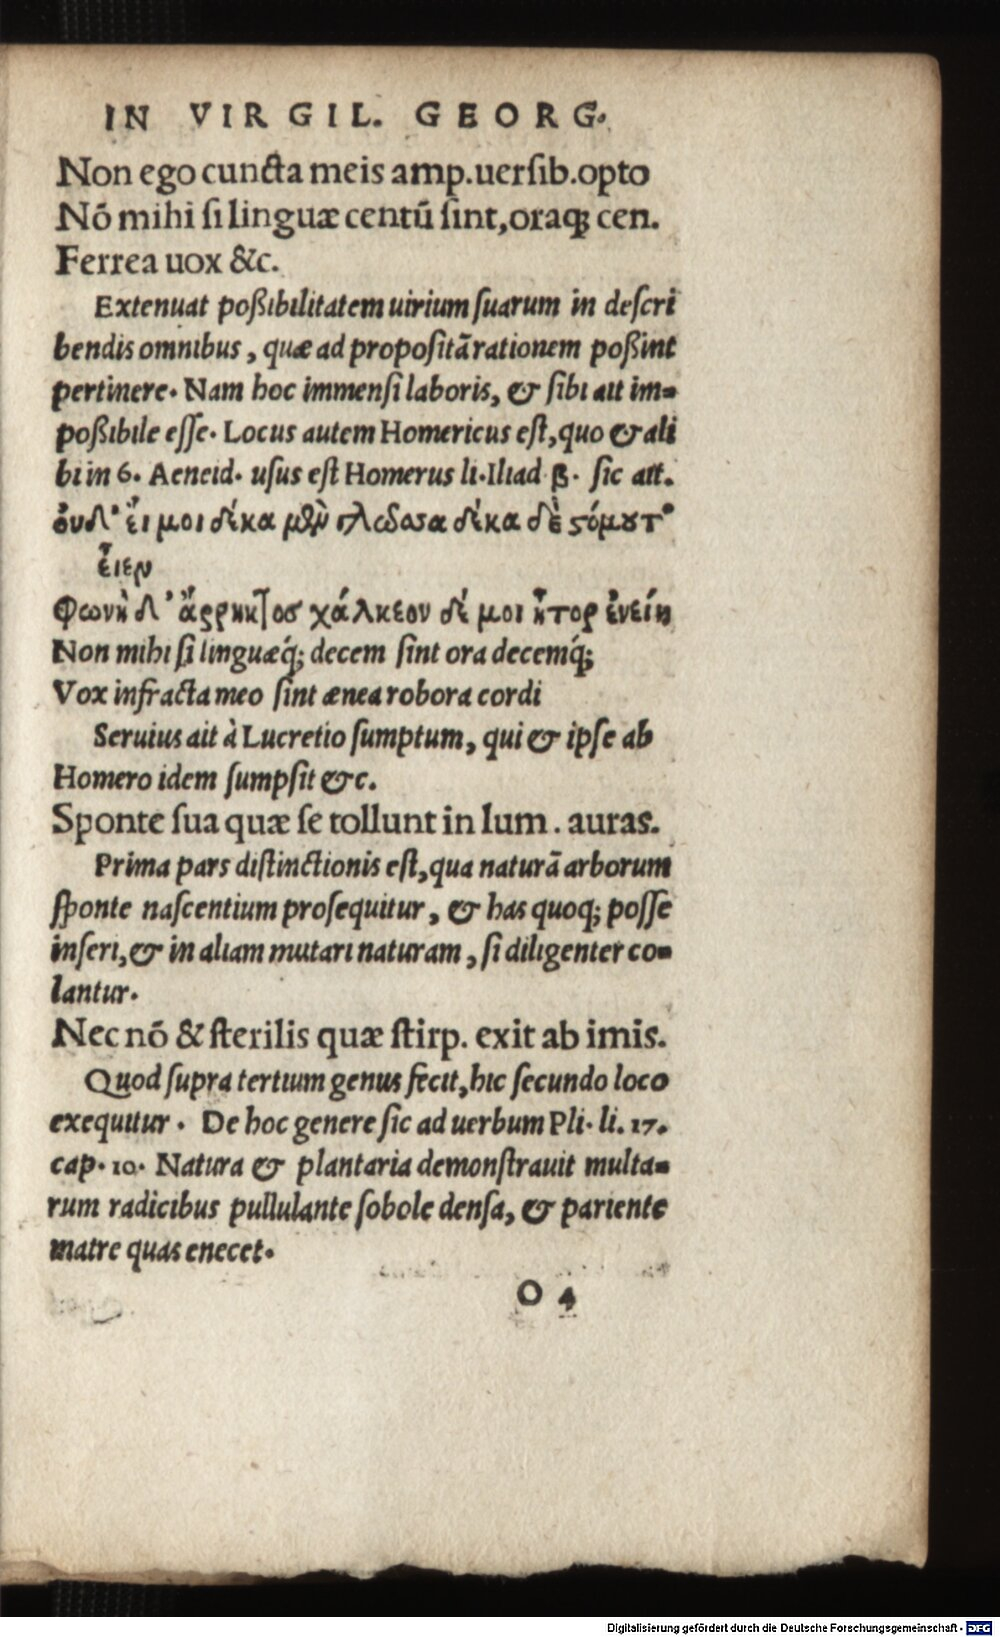 IN VIRGIL. GEORG.
Non ego cuncta meis amp.uersib.opto
Nō mihi si linguæ centū sint,oraq; cen.
Ferrea uox &c.
Extenuat poßibilitatem uirium suarum in descri
bendis omnibus, quæ ad propositā rationem poßint
pertinere. Nam hoc immensi laboris, & sibi ait im-
poßibile esse. Locus autem Homericus est,quo & ali
bi in 6. Aeneid. usus est Homerus li.Iliad β. sic ait.
ὀυδ' ἔι μοι δέκα μὲν γλῶσσαι δέκα δὲ στόματ'
ἔιεν
Φωνὴ δ' ἄρρηκτος χάλκεον δέ μοι ἦτορ ἐνείη
Non mihi si linguæq́; decem sint ora decemq́;
Vox infracta meo sint ænea robora cordi
Seruius ait à Lucretio sumptum, qui & ipse ab
Homero idem sumpsit &c.
Sponte sua quæ se tollunt in lum. auras.
Prima pars distinctionis est,qua naturā arborum
sponte nascentium prosequitur, & has quoq; posse
inseri,& in aliam mutari naturam, si diligenter co-
lantur.
Nec nō & sterilis quæ stirp. exit ab imis.
Quod supra tertium genus fecit,hic secundo loco
exequitur. De hoc genere sic ad uerbum Pli. li. 17.
cap. 10. Natura & plantaria demonstrauit multa-
rum radicibus pullulante sobole densa, & pariente
matre quas enecet.
O 4
Digitalisierung gefördert durch die Deutsche Forschungsgemeinschaft - DFG